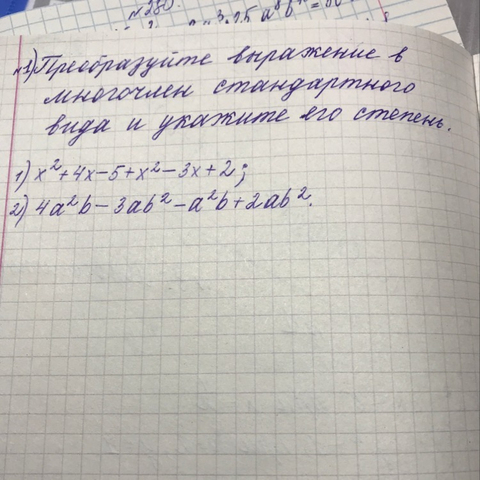 №280.
№1) Преобразуйте выражение в
многочлен стандартного
вида и укажите его степень.
1) x²+4x-5+x²-3x+2;
2) 4a²b-3ab²-a²b+2ab².